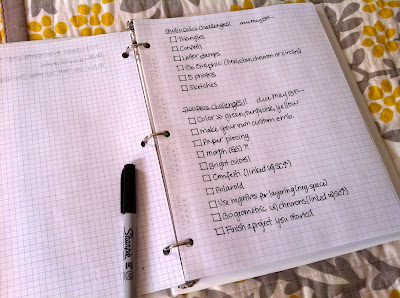 Studio Calico Challenges!! due May 9th~
☐ triangles
☐ Confetti
☐ Layer stamps
☐ Go Graphic (hexagon, chevron or circles)
☐ 5 photos
☐ Sketches
Challenges!! due May 13th~
☐ Color → green, turquoise, yellow
☐ make your own custom emb.
☐ Paper piecing
☐ morph
☐ Bright colors!
☐ Confetti (linked w/
☐ Polaroid
☐ Use negatives for layering (neg. space)
☐ Go geometric w/ chevrons (linked w/
☐ Finish a project you started
Sharpie